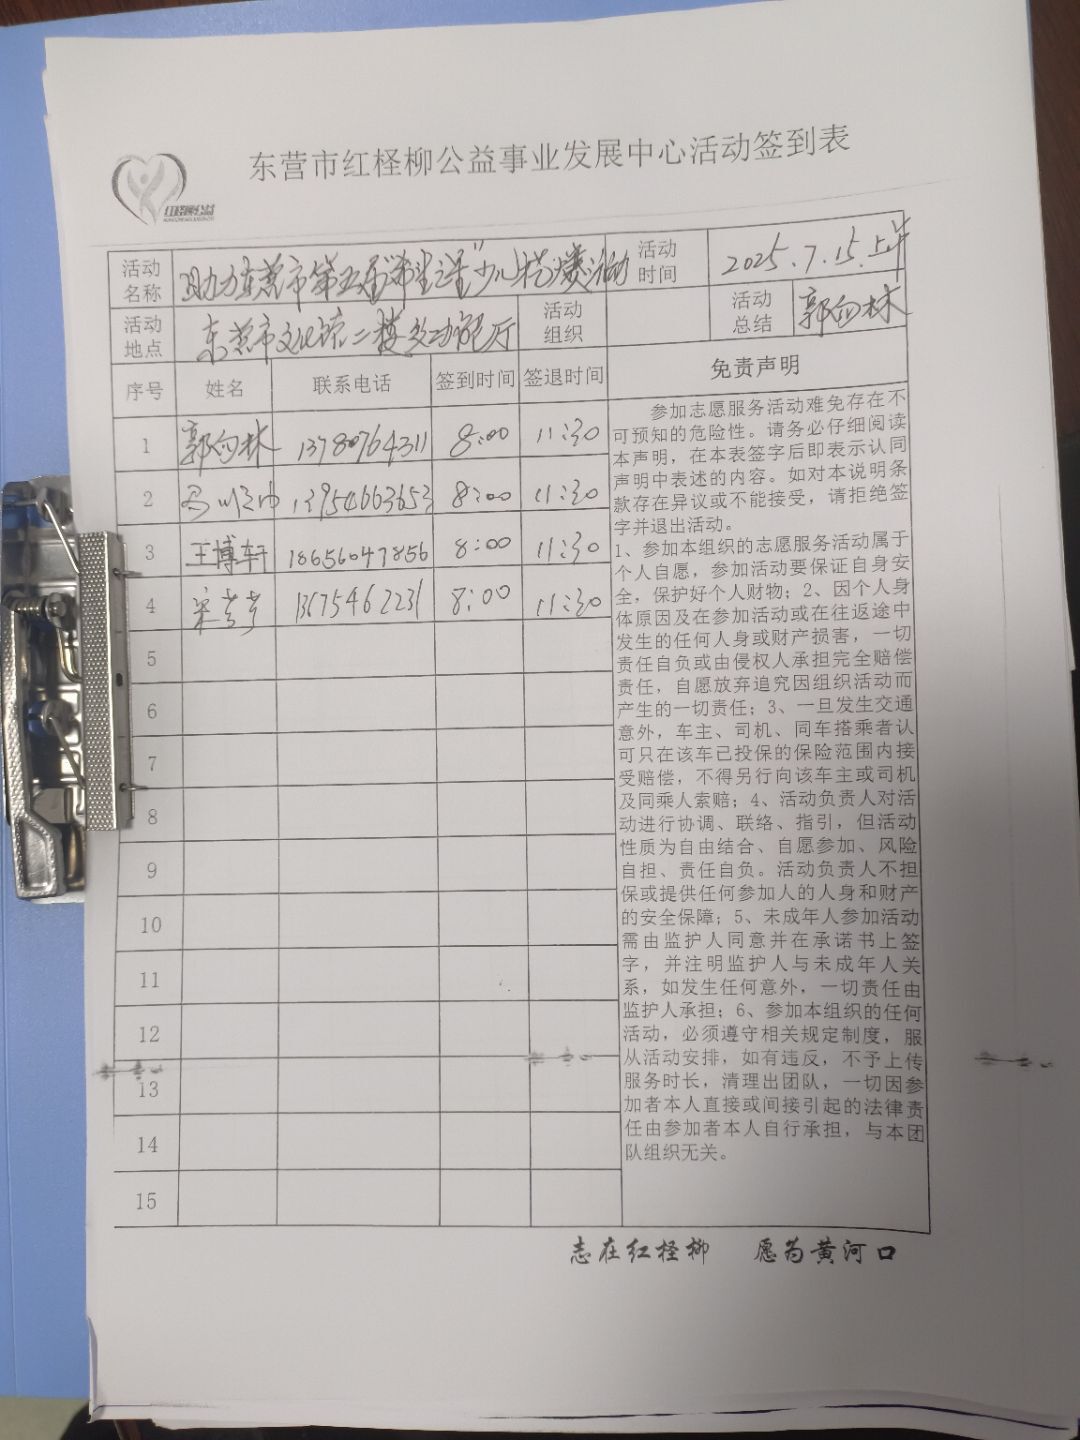 东营市红柽柳公益事业发展中心活动签到表
红柽柳公益
活动名称 助力东营市第五届"希望之星"少儿才艺大赛活动 活动时间 2025.7.15.上午
活动地点 东营市文化馆二楼多功能厅 活动组织 活动总结 郭向林
序号 姓名 联系电话 签到时间 签退时间 免责声明
1 郭向林 13780764311 8:00 11:30
2 13954663653 8:00 11:30
3 王博轩 18656047856 8:00 11:30
4 宋芳芳 13675462231 8:00 11:30
5
6
7
8
9
10
11
12
13
14
15
参加志愿服务活动难免存在不
可预知的危险性。请务必仔细阅读
本声明，在本表签字后即表示认同
声明中表述的内容。如对本说明条
款存在异议或不能接受，请拒绝签
字并退出活动。
1、参加本组织的志愿服务活动属于
个人自愿，参加活动要保证自身安
全，保护好个人财物；2、因个人身
体原因及在参加活动或在往返途中
发生的任何人身或财产损害，一切
责任自负或由侵权人承担完全赔偿
责任，自愿放弃追究因组织活动而
产生的一切责任；3、一旦发生交通
意外，车主、司机、同车搭乘者认
可只在该车已投保的保险范围内接
受赔偿，不得另行向该车主或司机
及同乘人索赔；4、活动负责人对活
动进行协调、联络、指引，但活动
性质为自由结合、自愿参加、风险
自担、责任自负。活动负责人不担
保或提供任何参加人的人身和财产
的安全保障；5、未成年人参加活动
需由监护人同意并在承诺书上签
字，并注明监护人与未成年人关
系，如发生任何意外，一切责任由
监护人承担；6、参加本组织的任何
活动，必须遵守相关规定制度，服
从活动安排，如有违反，不予上传
服务时长，清理出团队，一切因参
加者本人直接或间接引起的法律责
任由参加者本人自行承担，与本团
队组织无关。
志在红柽柳 愿为黄河口